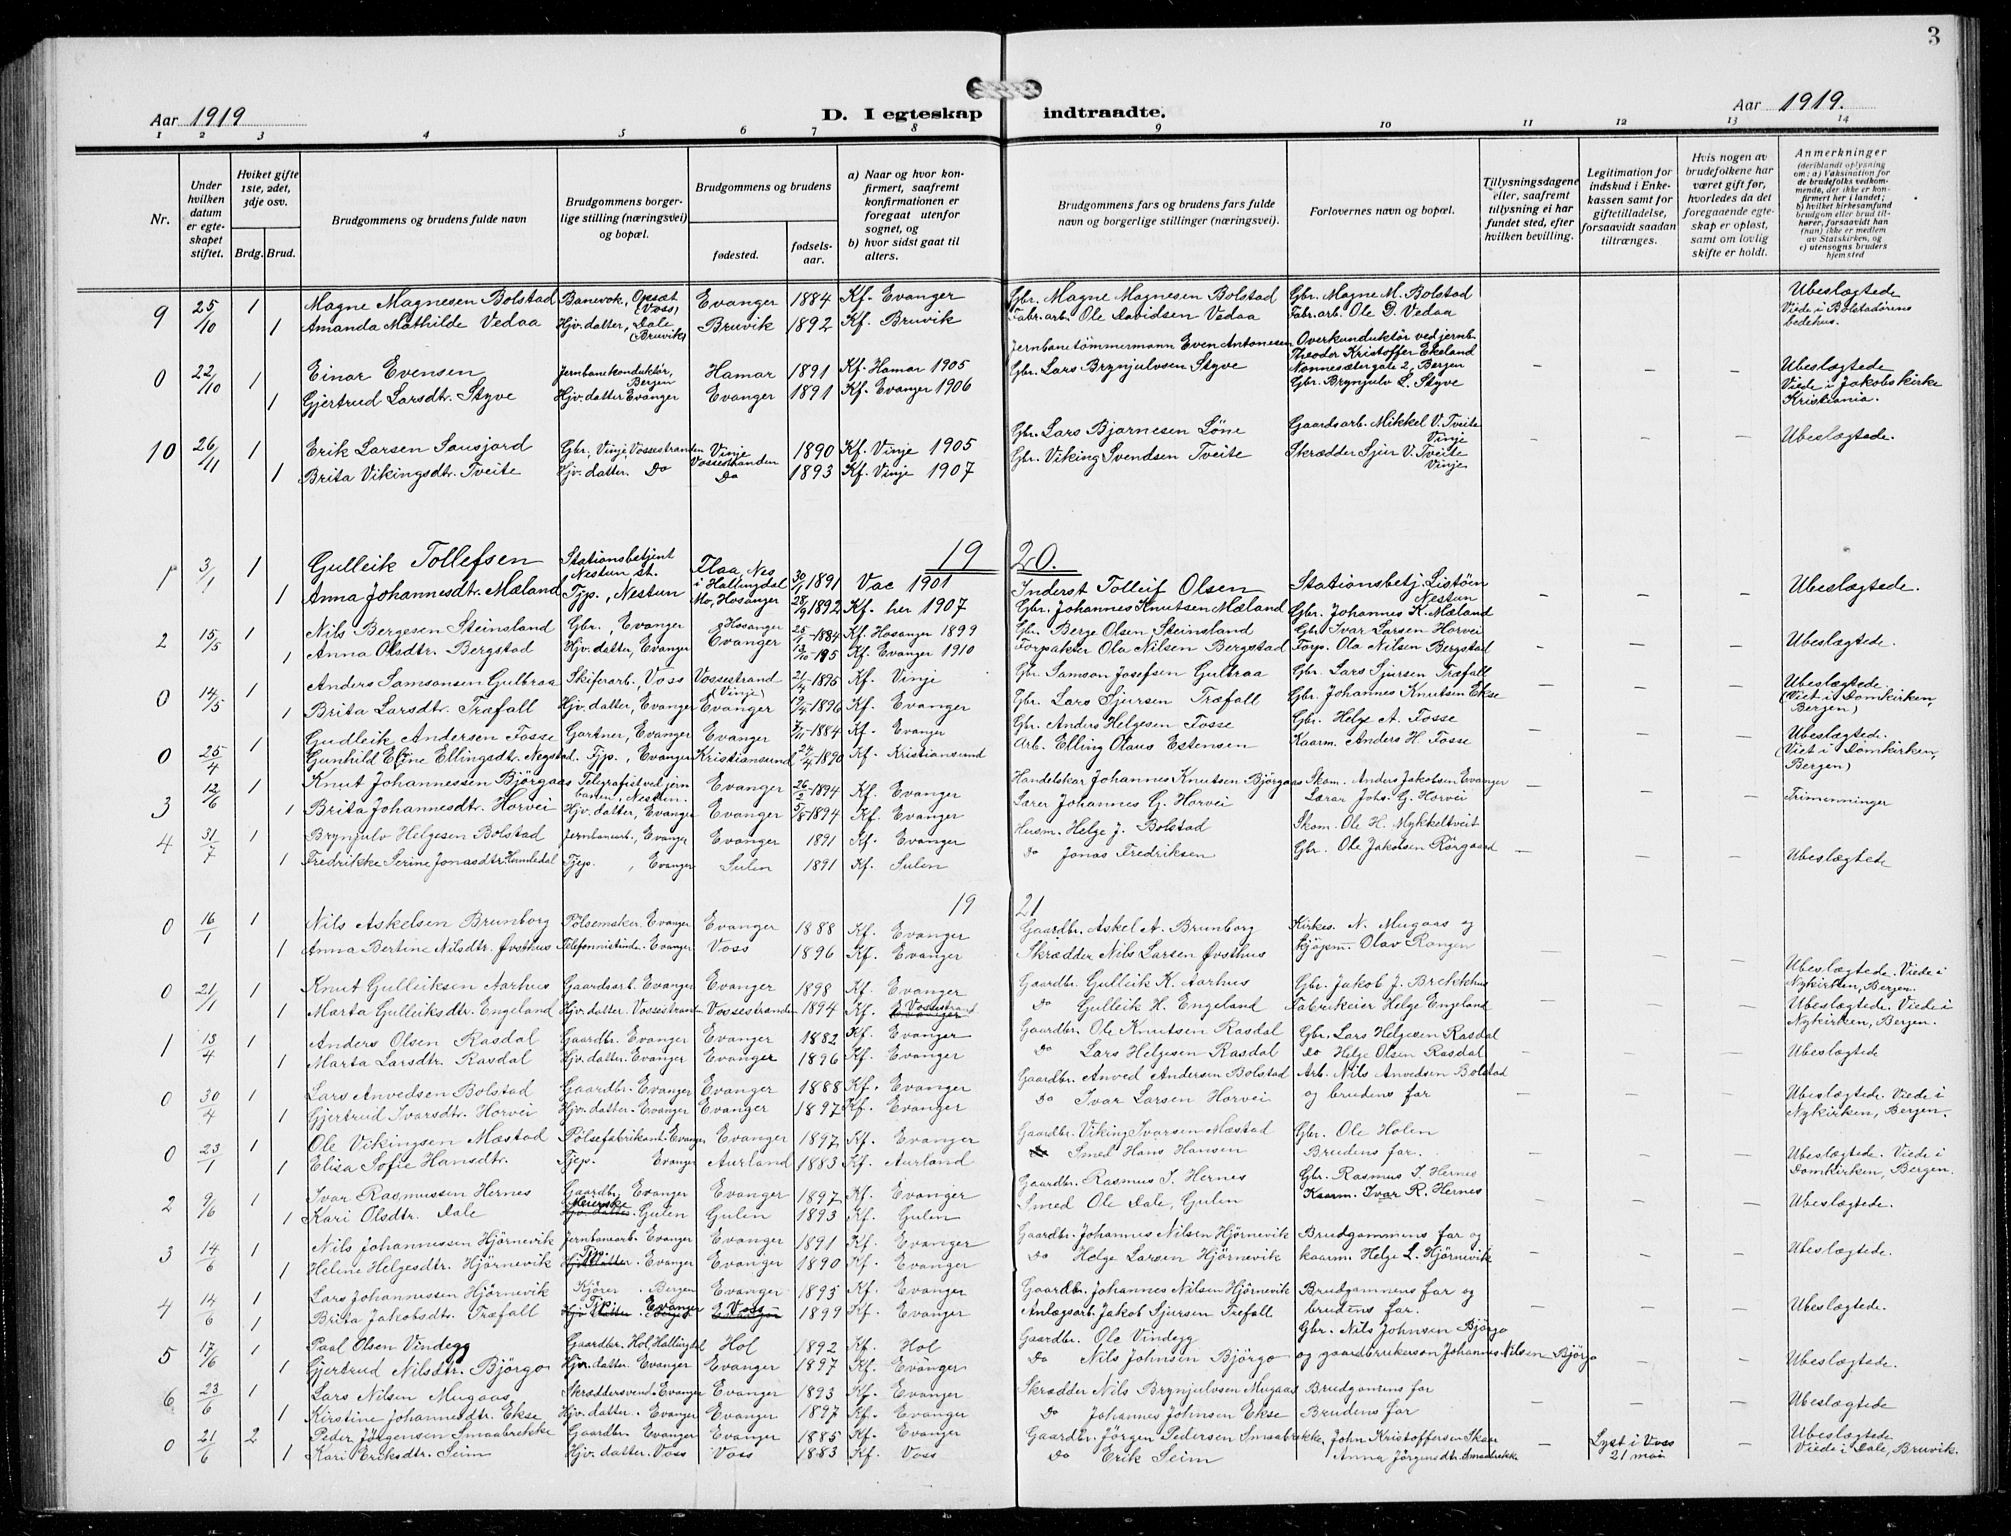 3
Aar 1919
D. I egteskap indtraadte.
Aar 1919.
1 2 3 4 5 6 7 8 9 10 11 12 13 14
Nr.
Under hvilken datum er egteskapet stiftet.
Hvilket gifte 1ste, 2det, 3dje osv.
Brdg. Brud.
Brudgommens og brudens fulde navn
Brudgommens borgerlige stilling (næringsvei) og bopæl.
Brudgommens og brudens
fødested.
fødselsaar.
a) Naar og hvor konfirmert, saafremt konfirmationen er foregaat utenfor sognet, og
b) hvor sidst gaat til alters.
Brudgommens fars og brudens fars fulde navn og borgerlige stillinger (næringsvei).
Forlovernes navn og bopæl.
Tillysningsdagene eller, saafremt tillysning ei har fundet sted, efter hvilken bevilling.
Legitimation for indskud i Enkekassen samt for giftetilladelse, forsaavidt saadan tiltrænges.
Hvis nogen av brudefolkene har været gift før, hvorledes da det foregaaende egteskap er opløst, samt om lovlig skifte er holdt.
Anmerkninger
(deriblandt oplysning om: a) Vaksination for de brudefolks vedkommende, der ikke er konfirmert her i landet; b) hvilket kirkesamfund brudgom eller brud tilhører, forsaavidt han (hun) ikke er medlem av Statskirken, og c) utensogns bruders hjemsted
9 25/10 1 Magne Magnesen Bolstad Banevok, Opsæt (Voss) Evanger 1884 Kf. Evanger Gbr. Magne Magnesen Bolstad Gbr. Magne M. Bolstad Ubeslægtede
1 Amanda Mathilde Vedaa Hjv. datter, Dale (Bruvik) Bruvik 1892 Kf. Bruvik Fabr. arb. Ole Davidsen Vedaa Fabr. arb. Ole D. Vedaa Viede i Bolstadørens bedehus.
0 22/10 1 Einar Evensen Jernbanekonduktør, Bergen Hamar 1891 Kf. Hamar 1905 Jernbanetømmermann Even Antonesen Overkonduktør ved jernb. Theodor Kristoffer Ekeland Nonnesætergate 2, Bergen Ubeslægtede
1 Gjertrud Larsdtr. Styve Hjv. datter Evanger Evanger 1891 Kf. Evanger 1906 Gbr. Lars Brynjulvsen Styve Gbr. Brynjulv L. Styve Viede i Jakobs kirke Kristiania.
10 26/11 1 Erik Larsen Sausjord Gbr, Vinje, Vossestranden Vinje Vossestranden 1890 Kf. Vinje 1905 Gbr. Lars Bjarnesen Løne Gaardsarb. Mikkel V. Tveite Vinje Ubeslægtede.
1 Brita Vikingsdtr. Tveite Hjv. datter. Do Do 1893 Kf. Vinje 1907 Gbr. Viking Svendsen Tveite Skrædder Sjur V. Tveite Vinje
19 20.
1 3/1 1 Gulleik Tollefsen Stationsbetjent Nestun st. Flaa, Nes i Hallingdal 30/1 1891 Vac 1901 Inderst Tolleif Olsen Stationsbetj. Listøen Nestun Ubeslægtede.
1 Anna Johannesdtr. Mæland Tjp., Nestun Mo, Hosanger 28/9 1892 Kf. her 1907 Gbr. Johannes Knutsen Mæland Gbr. Johannes K. Mæland
2 15/5 1 Nils Bergesen Steinsland Gbr., Evanger Hosanger 25/1-1884 Kf. Hosanger 1899 Gbr. Berge Olsen Steinsland Gbr. Ivar Larsen Horvei Ubeslægtede.
1 Anna Olsdtr. Bergstad Hjv. datter, Evanger Evanger 13/10-195 Kf. Evanger 1910 Forpakter Ola Nilsen Bergstad Forp. Ola Nilsen Bergstad
0 14/5 1 Anders Samsonsen Gulbraa Skiferarb., Voss Vossestrand (Vinje) 21/4-1895 Kf. Vinji Gbr. Samson Josefsen Gulbraa Gbr. Lars Sjursen Træfall Ubeslægtede.
1 Brita Larsdtr. Træfall Hjv. datter, Evanger Evanger 1896 Kf. Evanger Gbr. Lars Sjursen Træfall Gbr. Johannes Knutsen Ekse (Viet i Domkirken, Bergen)
0 25/4 1 Gudleik Andersen Fosse Gartner, Evanger Evanger 1884 Kf. Evanger Gbr. Anders Helgesen Fosse Gbr. Helge A. Fosse Ubeslægtede.
Gunhild Eline Ellingsdtr. Negstad. Tjp., Evanger Kristiansund 1890 Kf. Kristiansund Arb. Elling Olaus Estensen Kaarm. Anders H. Fosse (Viet i Domkirken, Bergen)
3 12/6 1 Knut Johannessen Björgaas Telegrafist ved jernbanen, Nestun. Evanger 26/2-1894 Kf. Evanger Handelskar Johannes Knutsen Björgaas Skom. Anders Jakobsen Evanger Trimenninger
1 Brita Johannesdtr. Horvei Hjv. datter, Evanger Evanger 5/8-1894 Kf. Evanger Lærer Johannes G. Horvei Lærar Johs. G. Horvei
4 31/7 1 Brynjulv Helgesen Bolstad Jernbanearb., Evanger Evanger 1891 Kf. Evanger Husm. Helge J. Bolstad Skom. Ole H. Mykkeltveit
1 Fredrikke Serine Jonasdtr. Hamledal Tjep., Evanger Sulen 1891 Kf. Sulen Do Jonas Fredriksen Gbr. Ole Jakobsen Rörgaard Ubeslægtede
19 21
0 16/1 1 Nils Askelsen Brunborg Pölsemaker. Evanger Evanger 1888 Kf. Evanger Gaardbr. Askel A. Brunborg Kirkes. N. Mugaas og
1 Anna Bertine Nilsdtr. Øvsthus Telefonnistinde. Evanger Voss 1896 Kf. Evanger Skrædder Nils Larsen Øvsthus kjøpm. Olav Rongen Ubeslægtede. Viede i Nykirken, Bergen.
0 21/1 1 Knut Gulleiksen Aarhus Gaardsarb. Evanger Evanger 1898 Kf. Evanger Gaardbr. Gulleik K. Aarhus Gbr. Jakob J. Brekkhus
1 Marta Gulleiksdtr. Engeland Hjv. datter. Vossestranden Vossestranden 1894 Kf. Vossestrand Do Gulleik H. Engeland Fabrikeier Helge Engeland Ubeslægtede. Viede i Nykirken, Bergen.
1 13/4 1 Anders Olsen Rasdal Gaardbr. Evanger Evanger 1882 Kf. Evanger Gaardbr. Ole Knutsen Rasdal Gbr. Lars Helgesen Rasdal Ubeslægtede
1 Marta Larsdtr. Rasdal Hjv. datter. Evanger Evanger 1896 Kf. Evanger Do Lars Helgesen Rasdal Do Helge Olsen Rasdal
0 30/4 1 Lars Anvedsen Bolstad Gaardbr. Evanger Evanger 1888 Kf. Evanger Gaardbr. Anved Andersen Bolstad Arb. Nils Anvedsen Bolstad Ubeslægtede. Viede i Nykirken, Bergen.
1 Gjertrud Ivarsdtr. Horvei Hjv. datter. Evanger Evanger 1897 Kf. Evanger Do Ivar Larsen Horvei og brudens far
0 23/1 1 Ole Vikingsen Mæstad Pölsefabrikant. Evanger Evanger 1897 Kf. Evanger Gaardbr. Viking Ivarsen Mæstad Gbr. Ole Holen Ubeslægtede. Viede i Domkirken, Bergen.
1 Elisa Sofie Hansdtr. Tjep. Evanger Aurland 1883 Kf. Aurland Smed Hans Hansen Brudens far.
2 9/6 1 Ivar Rasmussen Hernes Gaardbr. Evanger Evanger 1897 Kf. Evanger Gaardbr. Rasmus I. Hernes Gbr. Rasmus I. Hernes Ubeslægtede.
1 Kari Olsdtr. Dale Meierske Gulen Gulen 1893 Kf. Gulen Smed Ole Dale, Gulen Kaarm. Ivar R. Hernes
3 14/6 1 Nils Johannessen Hjörnevik Jernbanearb. Evanger Evanger 1891 Kf. Evanger Gaardbr. Johannes Nilsen Hjörnevik Brudgommens far og Ubeslægtede.
1 Heline Helgesdtr. Hjörnevik Evanger Evanger 1890 Kf. Evanger Do Helge Larsen Hjörnevik kaarm. Helge L. Hjörnevik
4 14/6 1 Lars Johannessen Hjörnevik Kjører. Bergen Evanger 1893 Kf. Evanger Gaardbr. Johannes Nilsen Hjörnevik Brudgommens far og Ubeslægtede.
1 Brita Jakobsdtr. Træfall Evanger Voss 1899 Kf. Evanger Anlægsarb. Jakob Sjursen Trefall brudens far.
5 17/6 1 Paal Olsen Vindegg Gaardbr. Hol, Hallingdal Hol 1892 Kf. Hol Gaardbr. Ole Vindegg Gbr. Nils Johnsen Björgo
1 Gjertrud Nilsdtr. Björgo Hjv. datter. Evanger Evanger 1897 Kf. Evanger Do Nils Johnsen Björgo og gaardbrukerson Johannes Nilsen Björgo Ubeslægtede.
6 23/6 1 Lars Nilsen Mugaas Skræddersvend. Evanger Evanger 1893 Kf. Evanger Skrædder Nils Brynjulvsen Mugaas Brudgomens far Ubeslægtede
1 Kirstine Johannesdtr. Ekse Hjv. datter. Evanger Evanger 1897 Kf. Evanger Do Johannes Johnsen Ekse Brudens far
0 21/6 2 Peder Jörgensen Smaabrekke Gaardbr. Evanger Evanger 1885 Kf. Evanger Gaardbr. Jörgen Pedersen Smaabrekke, John Kristoffersen Skaar Lyst i Voss 21 mai Ubeslægtede
1 Kari Eriksdtr. Seim Hjv. datter. Voss Voss 1883 Kf. Voss Do Erik Seim Anna Jörgensdtr. Smaabrekke Viede i Dale, Bruvik.